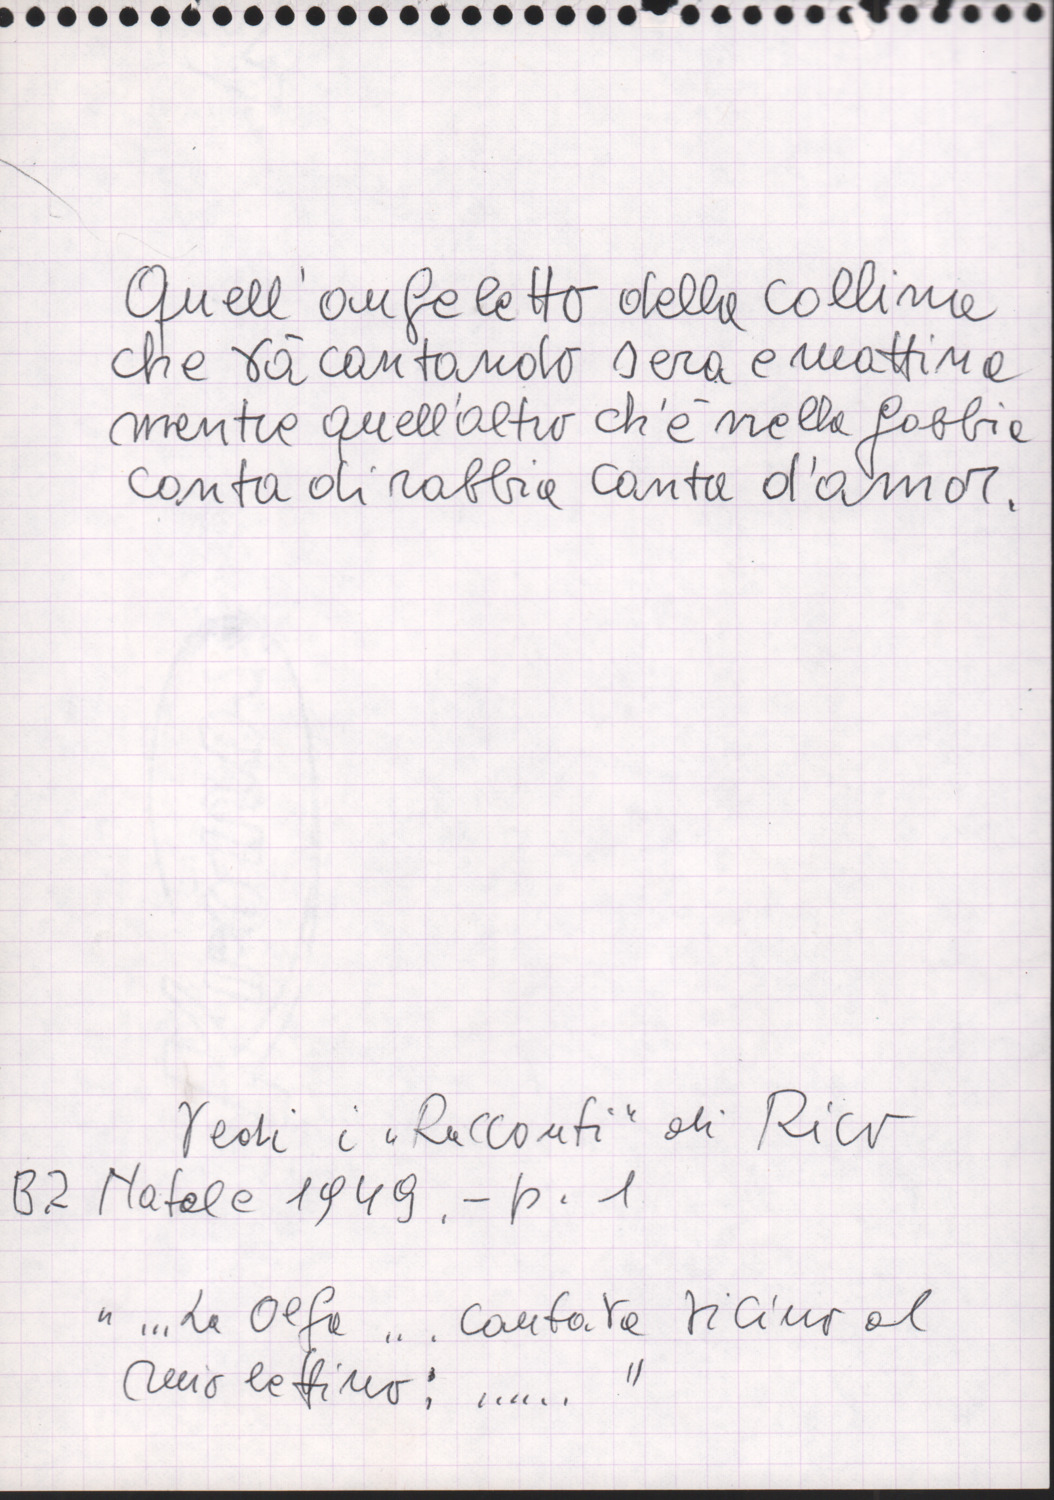 Quell'angeletto della collina
che và cantando sera e mattina
mentre quell'altro ch'è nella gabbia
canta di rabbia canta d'amor.
Vedi i "Racconti" di Rico
BZ Natale 1949.- p. 1
"...La Olga ... cantava vicino al
mio lettino: ...... "